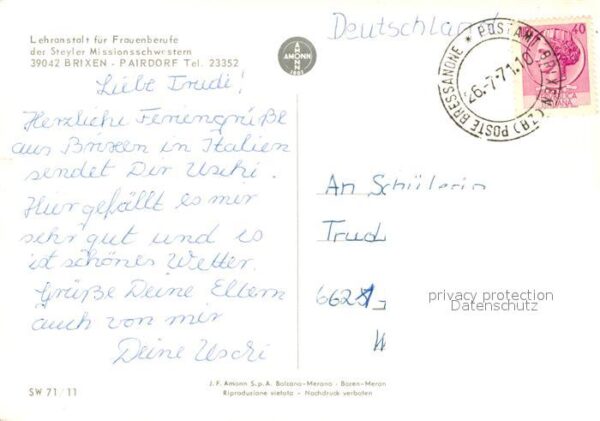 Lehranstalt für Frauenberufe
der Steyler Missionsschwestern
39042 BRIXEN - PAIRDORF Tel. 23352
AMONN
1881
Deutschland
POSTAMT BRIXEN (ZB) POSTE BRESSANONE
26.-7-71.10
40
Liebe Trudi!
Herzliche Feriengrüße
aus Brixen in Italien
sendet Dir Uschi.
Hier gefällt es mir
sehr gut und es
ist schönes Wetter.
Grüße Deine Eltern
auch von mir
Deine Uschi
An Schülerin
Trud
662
privacy protection
Datenschutz
SW 71/11
J. F. Amonn S.p.A. Bolzano-Merano - Bozen-Meran
Riproduzione vietata - Nachdruck verboten